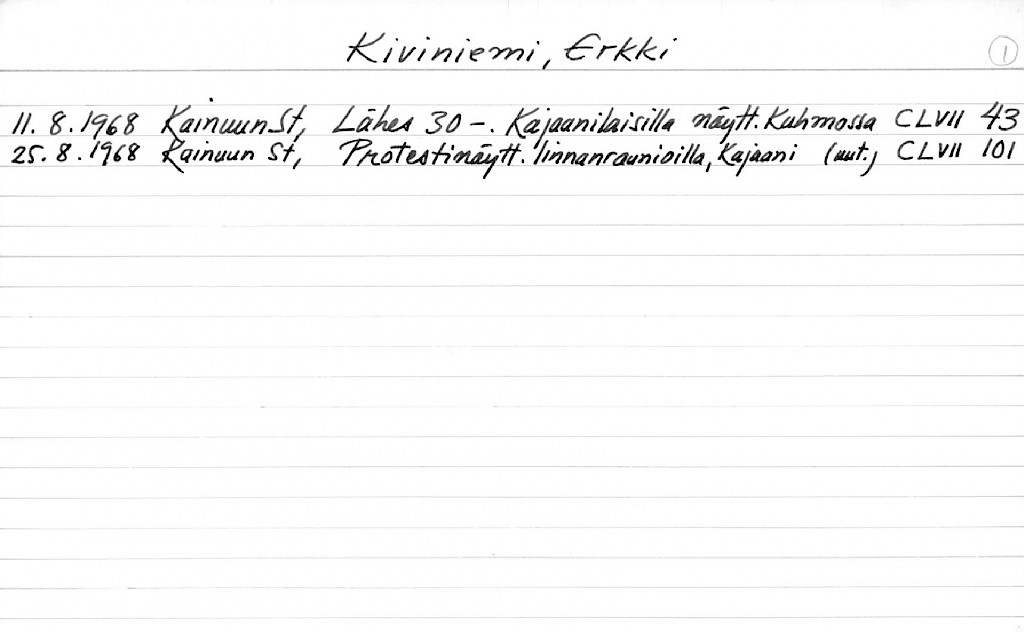 Kiviniemi, Erkki 1
11. 8. 1968 Kainuun St, Lähes 30 -. Kajaanilaisilla näytt. Kuhmossa CLVII 43
25. 8. 1968 Kainuun St, Protestinäytt. linnanraunioilla, Kajaani (uut.) CLVII 101